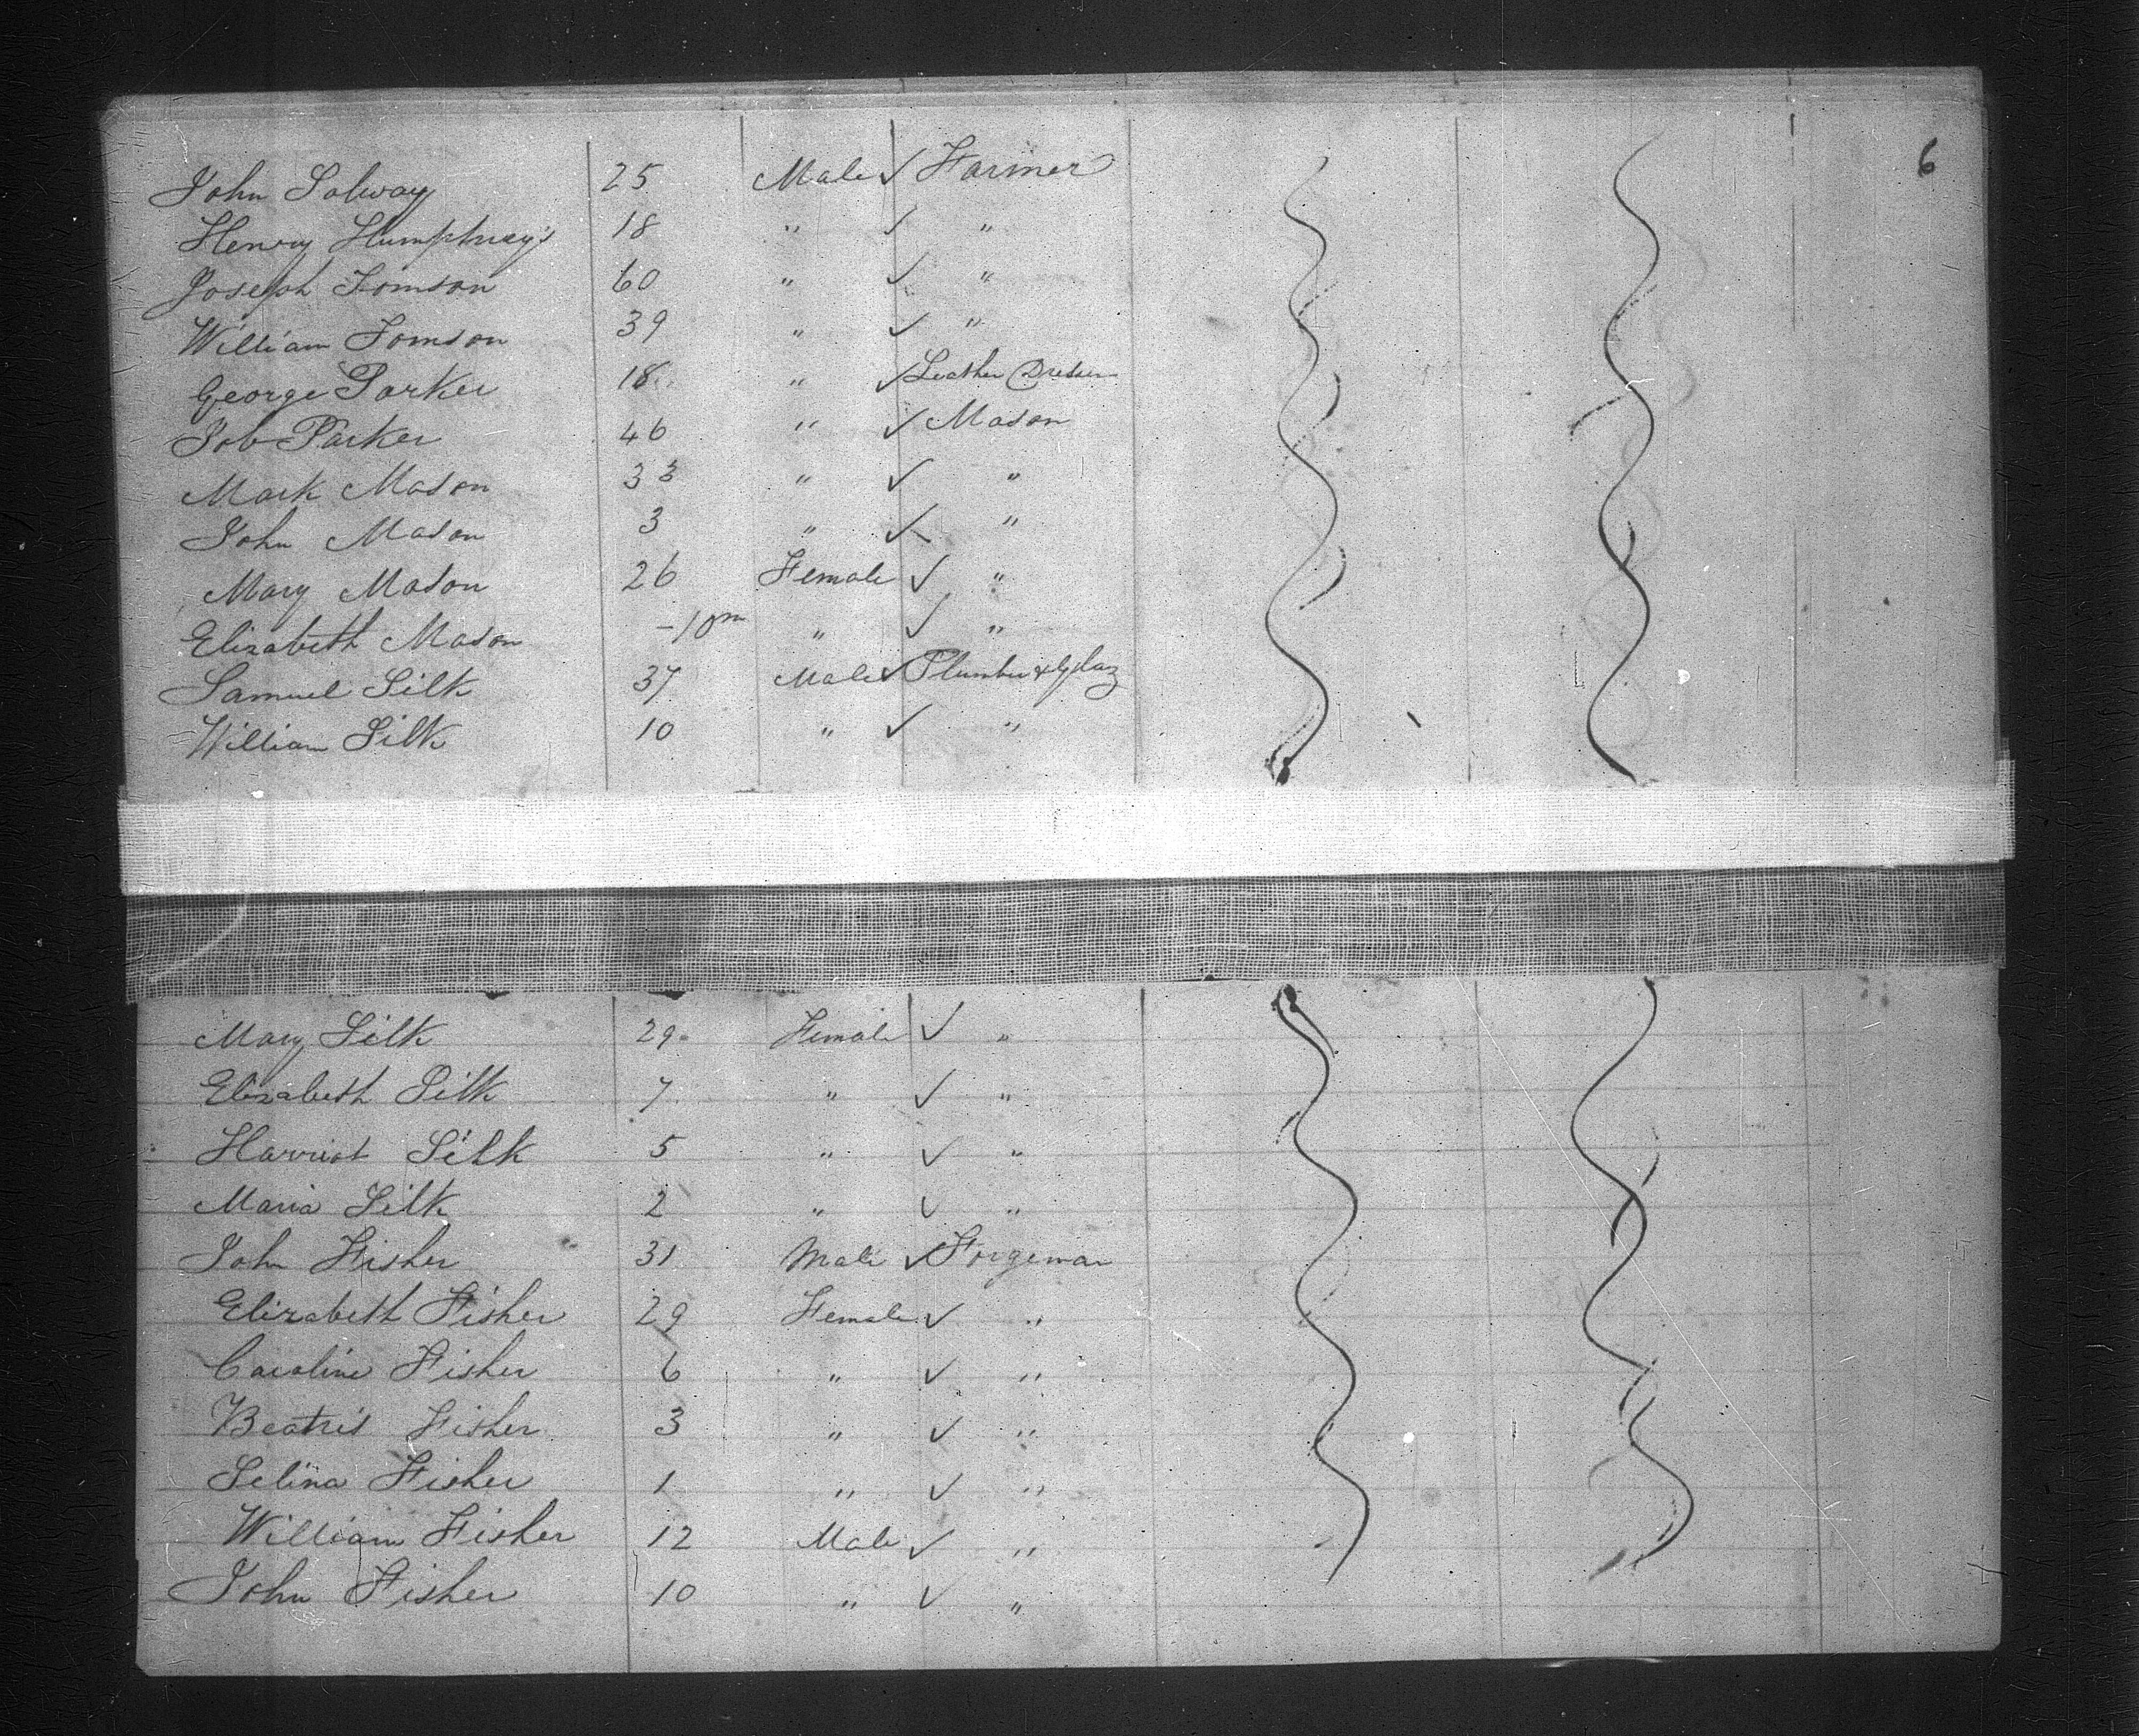 6
John Solway 25 Male ✓ Farmer
Henry Humphreys 18 " ✓ "
Joseph Tomson 60 " ✓ "
William Tomson 39 " ✓ "
George Parker 18 " ✓ Leather Dresser
Job Parker 46 " ✓ Mason
Mark Mason 33 " ✓ "
John Mason 3 " ✓ "
Mary Mason 26 Female ✓ "
Elizabeth Mason -10m " ✓ "
Samuel Silk 37 Male ✓ Plumber & Glaz
William Silk 10 " ✓ "
Mary Silk 29 Female ✓ "
Elizabeth Silk 7 " ✓ "
Harriot Silk 5 " ✓ "
Maria Silk 2 " ✓ "
John Fisher 31 Male ✓ Forgeman
Elizabeth Fisher 29 Female ✓ "
Caroline Fisher 6 " ✓ "
Beatris Fisher 3 " ✓ "
Selina Fisher 1 " ✓ "
William Fisher 12 Male ✓ "
John Fisher 10 " ✓ "